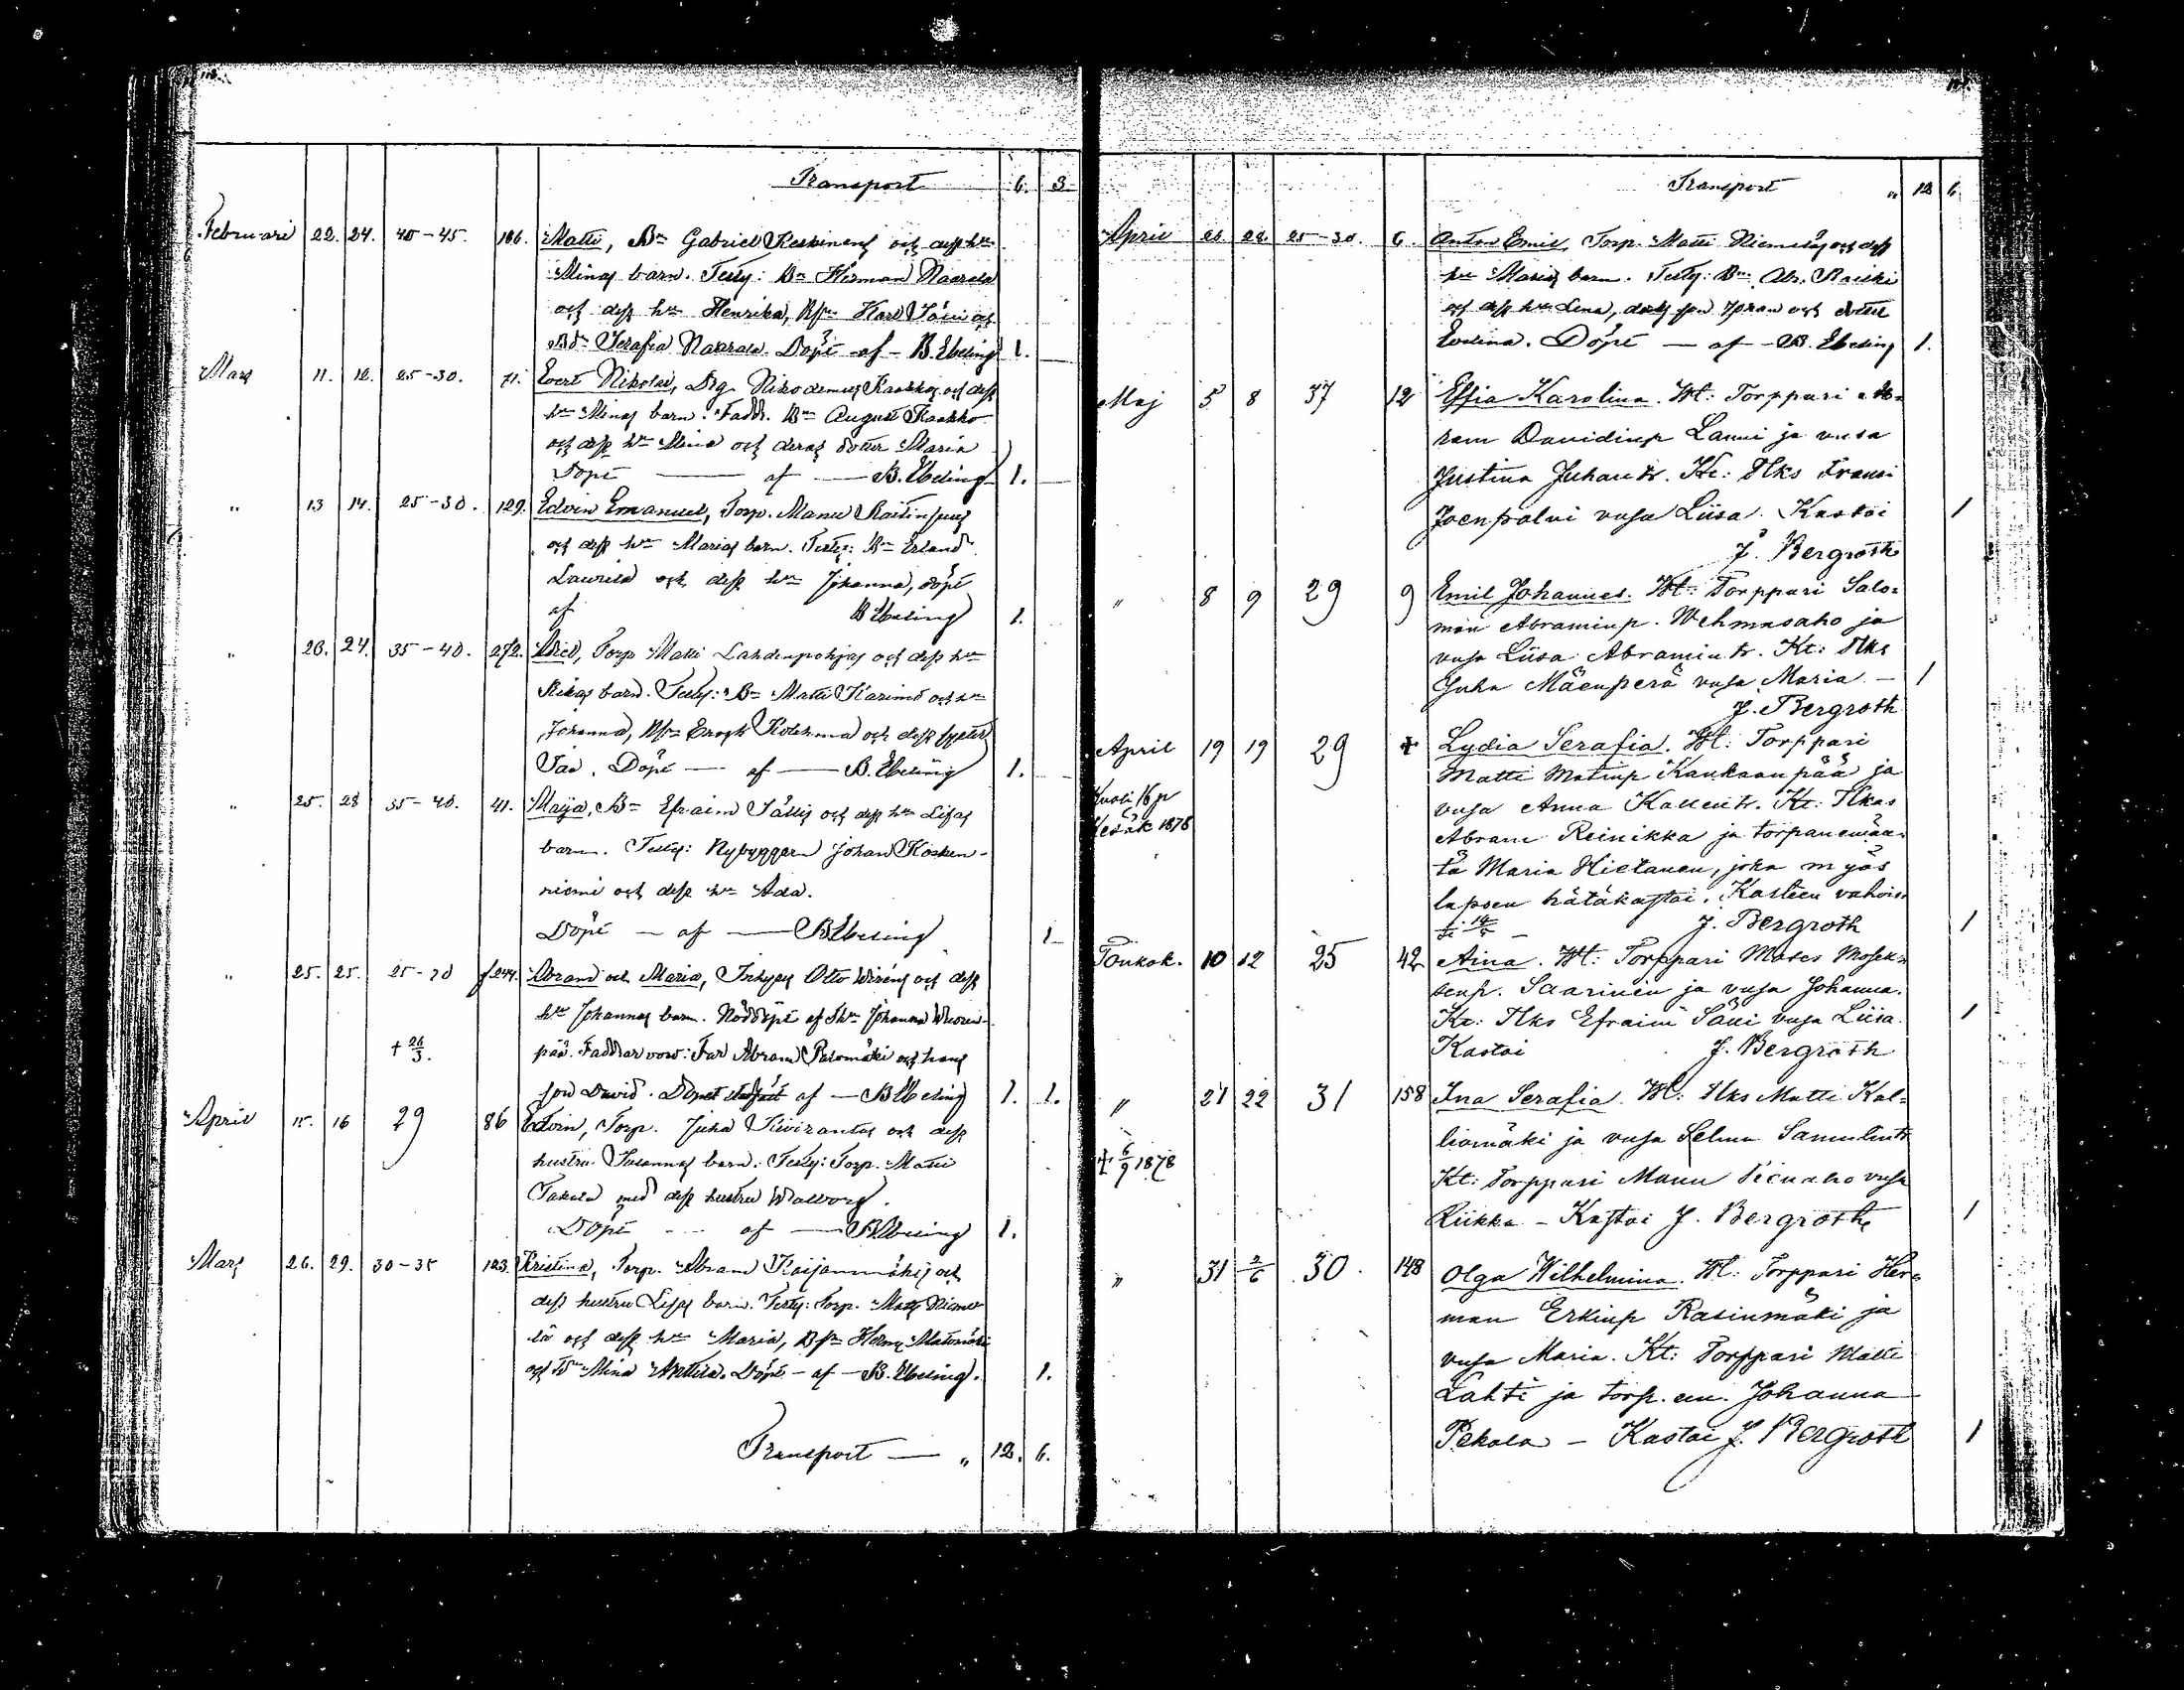 Transport 6. 3
Februari 22. 24. 40-45. 186. Matti, Bn Gabriel Keskinens och dess hu
Minas barn. Testy: Bn Herman Naarala
och dess hu Henrika, Karl Säni och
Serafia Naarala. Döpt af B. Ebeling 1.
Mars 11. 12. 25-30. 71. Evert Nikolai, Drg Nikodemus Kaakkos och dess
hu Minas barn. Fadd. Bn August Kaakko
och dess hu Mina och deras dotter Maria
Döpt af B. Ebeling 1.
" 13 14. 25-30. 129. Edvin Emanuel, Torp. Manu
och dess hu Marias barn. Testy: Bn Erland
Laurila och dess hu Johanna, döpt
af B Ebeling 1.
" 23. 24. 35-40. 272. Torp Matti Lahdenpohjas och dess hu
Rikas barn. Testy: Bn Matti och hu
Johanna, och dess syster
Döpt af B. Ebeling 1.
" 25. 28 35-40. 41. Maija, Bn Efraim Sällis och dess hu Lisas
barn. Testy: Nybyggarn Johan Kosken-
niemi och dess hu Ada.
Döpt af B Ebeling 1
" 25. 25. 25-30 f.244. Abram och Maria, Inhyses Otto och dess
hu Johannas barn. Nöddöpt af Johanna
pää. Faddrar voro: Far Abram Palomäki och hans
† 26/3.
son David. Dopet af B Ebeling 1. 1.
April 15. 16 29 86 Edvin, Torp. Juha Kivirantas och dess
hustru Susannas barn. Testy: Torp. Matti
Takala med dess hustru Walborg.
Döpt af B Ebeling 1.
Mars 26. 29. 30-35 123. Kristina, Torp. Abram och
dess hustru Lisas barn. Testy: Torp. Matts Niemelä
och dess hu Maria,
och Mina Döpt af B. Ebeling. 1.
Transport " 12. 6.
Transport " 12 6.
April 26. 28. 25-30. 6. Anton Emil, Torp. Matti och dess
hu Marias barn. Testy: Bn Abr. Rauski
och dess hu Lena, deras son Johan och dotter
Evelina. Döpt af B. Ebeling 1.
Maj 5 8 37 12 Effia Karolina. Wt: Torppari Ab-
ram Davidinp Lanni ja vusa
Justina Juhantr. Kt: Ilks Fransi
Joenpolvi vusa Liisa. Kastoi 1
J. Bergroth
" 8 9 29 9 Emil Johannes. Wt: Torppari Salo-
mon Abraminp. Wehmasaho ja
vusa Liisa Abramintr. Kt: Ilks
Juha Mäenperä vusa Maria - 1
J. Bergroth
April 19 19 29 + Lydia Serafia. Wt: Torppari
Matti Matinp Kauksanpää ja
Kuoli 16 p
vusa Anna Kallentr. Kt: Ilkas
Kesäk 1878
Abram Reinikka ja torpanemän-
tä Maria Hietanen, joka myös
lapsen hätäkastoi. Kasteen vahvis
J. Bergroth 1
Toukok. 10 12 25 42 Aina. Wt: Torppari Moses Mosek-
senp. Saarinen ja vusa Johanna.
Kt: Ilks Efraim Säni vusa Liisa. 1
Kastoi J. Bergroth
" 21 22 31 158 Ina Serafia. Wt: Ilks Matti Kal-
liomäki ja vusa Selma Samulintr
† 6/9 1878
Kt: Torppari Manu vusa
Riikka - Kastoi J. Bergroth 1
" 31 2/6 30. 148 Olga Wilhelmina. Wt: Torppari Her-
man Erkinp Rasinmäki ja
vusa Maria. Kt: Torppari Matti
Lahti ja torp. em. Johanna
Pekola - Kastoi J. Bergroth 1